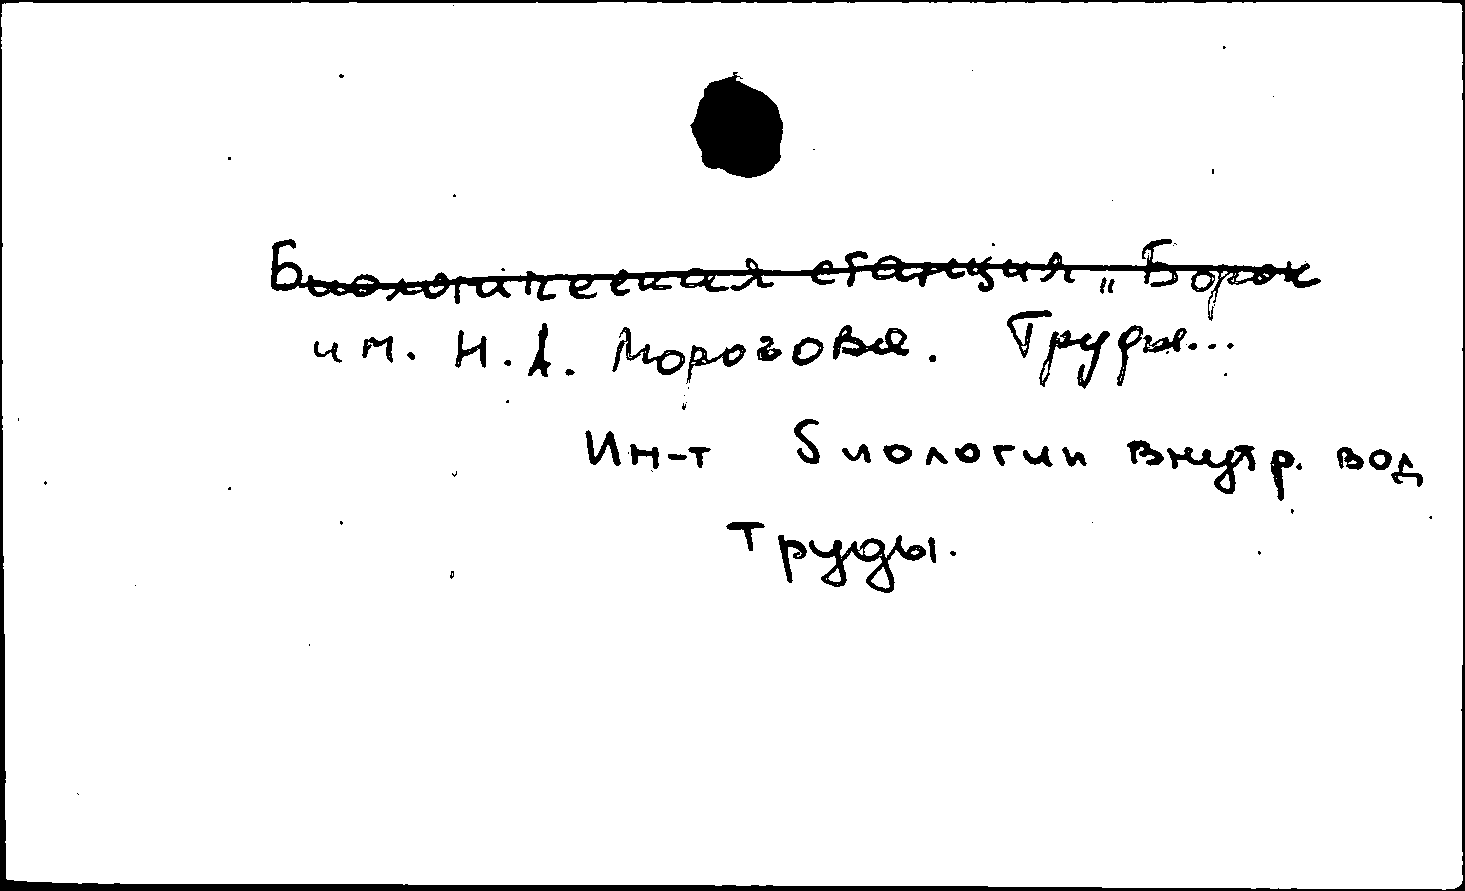 Биологическая станция „Борок
им. Н. А. Морозова. Труды...
Ин-т биологии внутр. вод
Труды.